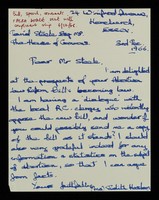 24 Winifred Avenue,
Hornchurch,
Essex
David Steel, Esq MP
The House of Commons.
2nd Dec.
1966
Dear Mr Steele,
I am delighted
at the prospects of your abortion
law reform bill's becoming law.
I am having a dialogue with
the local RC clergy who violently
oppose the new bill, and wonder if
you could possibly send me a copy
of the bill as it stands? I would
also be extremely grateful for any
information & statistics on the effect
of abortion, so that I can argue
from facts.
Yours faithfully,